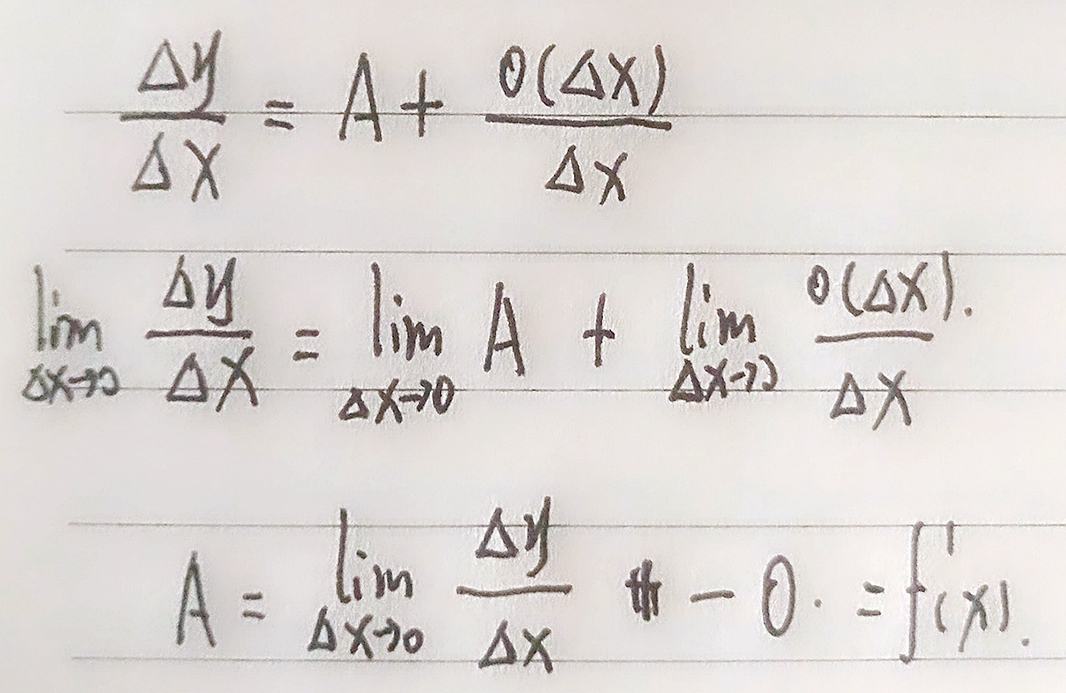 Δy/Δx = A + o(Δx)/Δx
lim Δx→0 Δy/Δx = lim Δx→0 A + lim Δx→0 o(Δx)/Δx.
A = lim Δx→0 Δy/Δx - 0. = f'(x).